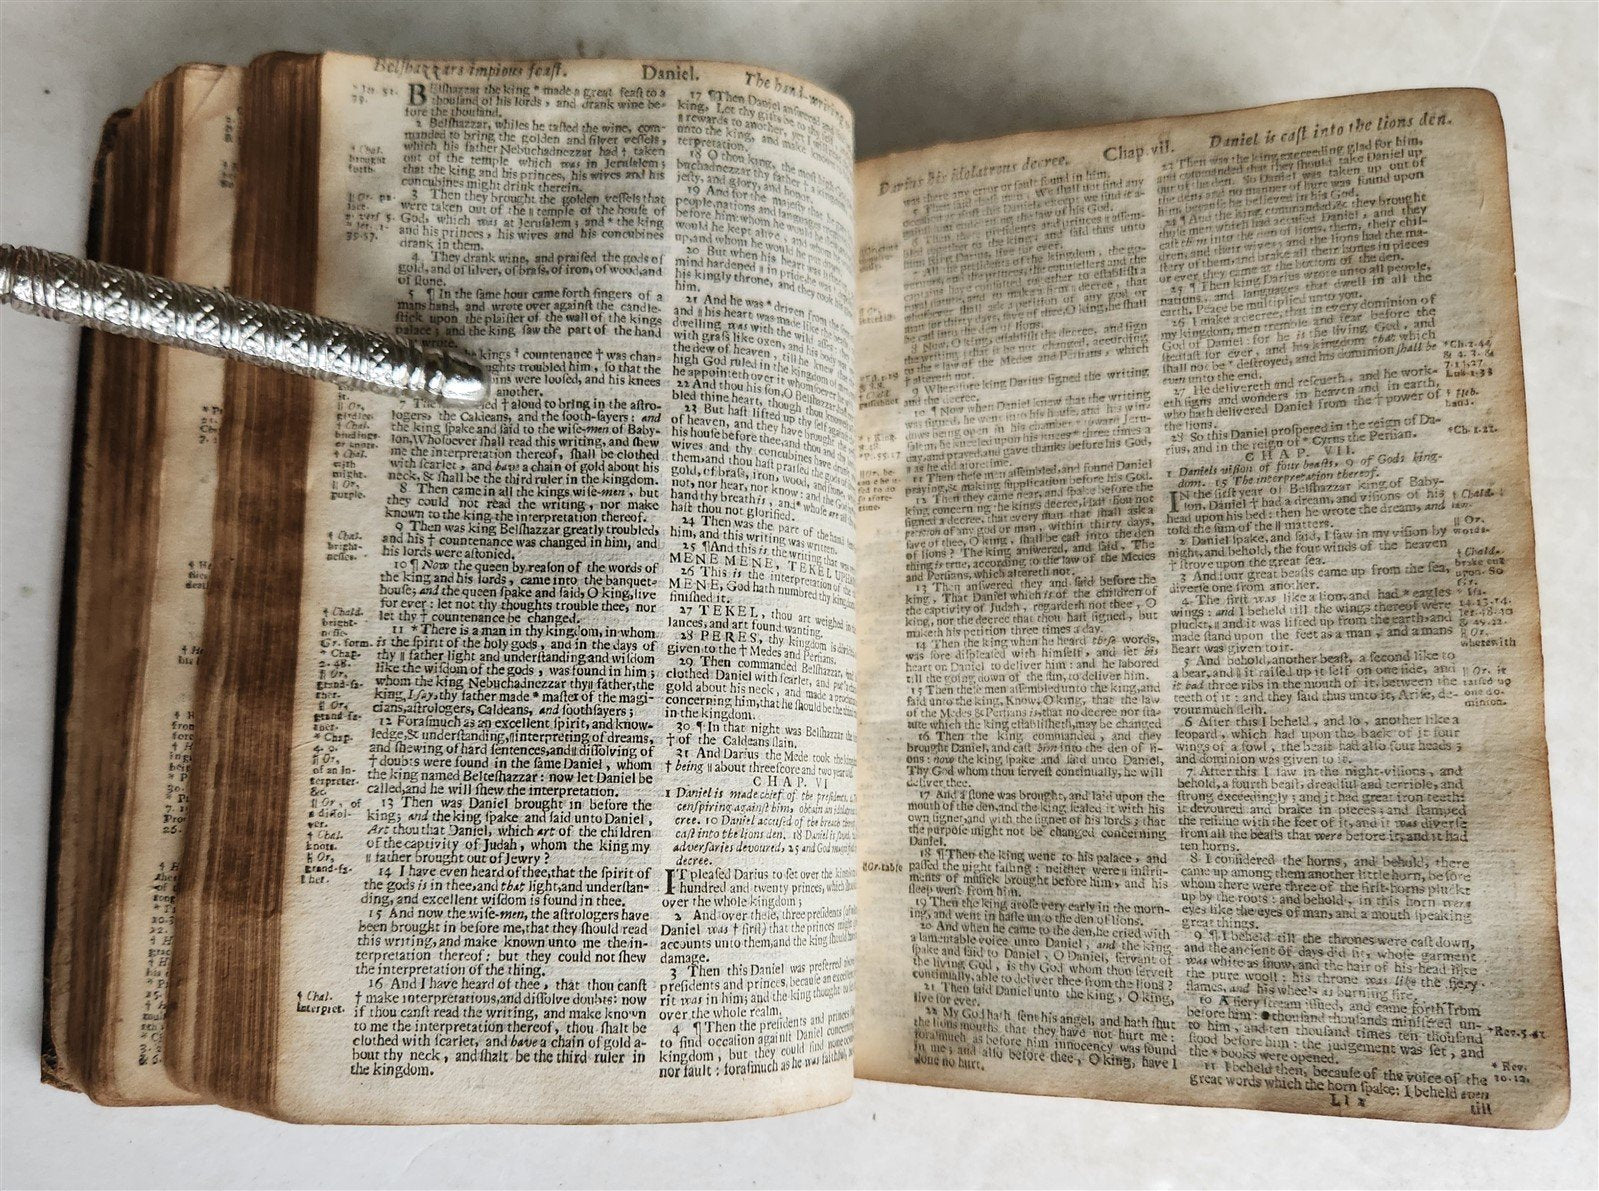 Belshazzars impious feast. Daniel. The hand-writing
Belshazzar the king * made a great feast to a
thousand of his lords, and drank wine be-
fore the thousand.
2 Belshazzar, whiles he tasted the wine, com-
manded to bring the golden and silver vessels,
which his father Nebuchadnezzar had † taken
out of the temple which was in Jerusalem;
that the king and his princes, his wives and his
concubines might drink therein.
3 Then they brought the golden vessels that
were taken out of the || temple of the house of
God, which was at Jerusalem; and * the king
and his princes, his wives and his concubines
drank in them.
4 They drank wine, and praised the gods of
gold, and of silver, of brass, of iron, of wood, and
of stone.
5 ¶ In the same hour came forth fingers of a
mans hand, and wrote over against the candle-
stick upon the plaister of the wall of the kings
palace; and the king saw the part of the hand
wrote.
kings † countenance † was chan-
ghts troubled him, so that the
ins were loosed, and his knees
another.
7 The † aloud to bring in the astro-
logers, the Caldeans, and the sooth-sayers: and
the king spake and said to the wise-men of Baby-
lon, Whosoever shall read this writing, and shew
me the interpretation thereof, shall be clothed
with scarlet, and have a chain of gold about his
neck, & shall be the third ruler in the kingdom.
8 Then came in all the kings wise-men, but
they could not read the writing, nor make
known to the king the interpretation thereof.
9 Then was king Belshazzar greatly troubled,
and his † countenance was changed in him, and
his lords were astonied.
10 ¶ Now the queen by reason of the words of
the king and his lords, came into the banquet-
house; and the queen spake and said, O king, live
for ever: let not thy thoughts trouble thee, nor
let thy † countenance be changed.
11 * There is a man in thy kingdom, in whom
is the spirit of the holy gods, and in the days of
thy || father light and understanding and wisdom
like the wisdom of the gods, was found in him;
whom the king Nebuchadnezzar thy || father, the
king, I say, thy father made * master of the magi-
cians, astrologers, Caldeans, and soothsayers;
12 Forasmuch as an excellent spirit, and know-
ledge, & understanding, || interpreting of dreams,
and shewing of hard sentences, and || dissolving of
† doubts were found in the same Daniel, whom
the king named Belteshazzar: now let Daniel be
called, and he will shew the interpretation.
13 Then was Daniel brought in before the
king; and the king spake and said unto Daniel,
Art thou that Daniel, which art of the children
of the captivity of Judah, whom the king my
|| father brought out of Jewry?
14 I have even heard of thee, that the spirit of
the gods is in thee, and that light, and understan-
ding, and excellent wisdom is found in thee.
15 And now the wise-men, the astrologers have
been brought in before me, that they should read
this writing, and make known unto me the in-
terpretation thereof: but they could not shew
the interpretation of the thing.
16 And I have heard of thee, that thou canst
† make interpretations, and dissolve doubts: now
if thou canst read the writing, and make known
to me the interpretation thereof, thou shalt be
clothed with scarlet, and have a chain of gold a-
bout thy neck, and shalt be the third ruler in
the kingdom.
† Chal.
brought
forth.
† Chal.
bright-
nesses.
† Chal.
interpret.
17 ¶ Then Daniel answered and
king, Let thy gifts be to thy
|| rewards to another, yet I will
unto the king, and make known
terpretation.
18 O thou king, the most high
buchadnezzar thy father a kingdom
jesty, and glory, and honor.
19 And for the majesty that he
people, nations and languages
before him: whom he would he
would he kept alive, and whom
up, and whom he would he put
20 But when his heart was lifted
mind hardened || in pride, he was
his kingly throne, and they took his
him.
21 And he was * driven from the
and || his heart was made like the
dwelling was with the wild asses:
with grass like oxen, and his body
the dew of heaven, till he knew
high God ruled in the kingdom of
he appointeth over it whomsoever
22 And thou his son, O Belshazzar,
bled thine heart, though thou
23 But hast lifted up thy self against
of heaven, and they have brought
his house before thee, and thou and
wives and thy concubines have drunk
them, and thou hast praised the gods of
gold, of brass, iron, wood, and stone, which
not, nor hear, nor know: and the God
hand thy breath is, and * whose are all
hast thou not glorified.
24 Then was the part of the hand
him, and this writing was written.
25 ¶ And this is the writing that was
MENE MENE, TEKEL UPHARSIN
26 This is the interpretation of the
MENE, God hath numbred thy kingdom
finished it.
27 TEKEL, thou art weighed in
lances, and art found wanting.
28 PERES, thy kingdom is divided,
given to the † Medes and Persians.
29 Then commanded Belshazzar, and
clothed Daniel with scarlet, and put
gold about his neck, and made a
concerning him, that he should be the
in the kingdom.
30 ¶ In that night was Belshazzar the
† of the Caldeans slain.
31 And Darius the Mede took the
† being || about threescore and two year old.
CHAP. VI
1 Daniel is made chief of the presidents. 4
conspiring against him, obtain an
cree. 10 Daniel accused of the breach
cast into the lions den. 18 Daniel is
adversaries devoured, 25 and God
decree.
IT pleased Darius to set over the kingdom
hundred and twenty princes, which
over the whole kingdom;
2 And over these, three presidents (of
Daniel was † first) that the princes might
accounts unto them, and the king should have
damage.
3 Then this Daniel was preferred
presidents and princes, because an excellent
rit was in him; and the king thought
over the whole realm.
4 ¶ Then the presidents and princes
to find occasion against Daniel concerning
kingdom, but they could find none
nor fault: forasmuch as he was faithful,
Darius his idolatrous decree. Chap. vii. Daniel is cast into the lions den.
was there any error or fault found in him.
5 Then said these men, We shall not find any
occasion against this Daniel, except we find it a-
gainst him concerning the law of his God.
6 Then these presidents and princes || assem-
bled together to the king, and said thus unto
him, King Darius, live for ever.
7 All the presidents of the kingdom, the go-
vernours, and the princes, the counsellers and the
captains, have consulted together to establish a
royal statute, and to make a firm || decree, that
whosoever shall ask a petition of any god or
man for thirty days, save of thee, O king, he shall
be cast into the den of lions.
8 Now, O king, establish the decree, and sign
the writing, that it be not changed, according
to the * law of the Medes and Persians, which
† altereth not.
9 Wherefore king Darius signed the writing
and the decree.
10 ¶ Now when Daniel knew that the writing
was signed, he went into his house, and his win-
dows being open in his chamber * toward Jeru-
salem, he kneeled upon his knees * three times a
day, and prayed, and gave thanks before his God,
|| as he did aforetime.
11 Then these men assembled, and found Daniel
praying, & making supplication before his God.
12 Then they came near, and spake before the
king concerning the kings decree, Hast thou not
signed a decree, that every man that shall ask a
petition of any god or man, within thirty days,
save of thee, O king, shall be cast into the den
of lions? The king answered, and said, The
thing is true, according to the law of the Medes
and Persians, which altereth not.
13 Then answered they and said before the
king, That Daniel which is of the children of
the captivity of Judah, regardeth not thee, O
king, nor the decree that thou hast signed, but
maketh his petition three times a day.
14 Then the king when he heard these words,
was sore displeased with himself, and set his
heart on Daniel to deliver him: and he labored
till the going down of the sun, to deliver him.
15 Then these men assembled unto the king, and
said unto the king, Know, O king, that the law
of the Medes & Persians is, that no decree nor sta-
tute which the king establisheth, may be changed
16 Then the king commanded, and they
brought Daniel, and cast him into the den of li-
ons: now the king spake and said unto Daniel,
Thy God whom thou servest continually, he will
deliver thee.
17 And a stone was brought, and laid upon the
mouth of the den, and the king sealed it with his
own signet, and with the signet of his lords; that
the purpose might not be changed concerning
Daniel.
18 ¶ Then the king went to his palace, and
passed the night fasting: neither were || instru-
ments of musick brought before him, and his
sleep went from him.
19 Then the king arose very early in the morn-
ing, and went in haste unto the den of lions.
20 And when he came to the den, he cried with
a lamentable voice unto Daniel, and the king
spake and said to Daniel, O Daniel, servant of
the living God, is thy God whom thou servest
continually, able to deliver thee from the lions?
21 Then said Daniel unto the king, O king,
live for ever.
22 My God hath sent his angel, and hath shut
the lions mouths that they have not hurt me:
forasmuch as before him innocency was found
in me; and also before thee, O king, have I
done no hurt.
|| Or, table
23 Then was the king exceeding glad for him,
and commanded that they should take Daniel up
out of the den. So Daniel was taken up out of
the den, and no manner of hurt was found upon
him, because he believed in his God.
24 ¶ And the king commanded, & they brought
those men which had accused Daniel, and they
cast them into the den of lions, them, their chil-
dren, and their wives; and the lions had the ma-
stery of them, and brake all their bones in pieces
or ever they came at the bottom of the den.
25 ¶ Then king Darius wrote unto all people,
nations, and languages that dwell in all the
earth, Peace be multiplied unto you.
26 I make a decree, that in every dominion of
my kingdom, men tremble and fear before the
God of Daniel: for he is the living God, and
stedfast for ever, and his kingdom that which
shall not be * destroyed, and his dominion shall be
even unto the end.
27 He delivereth and rescueth, and he work-
eth signs and wonders in heaven and in earth,
who hath delivered Daniel from the † power of
the lions.
28 So this Daniel prospered in the reign of Da-
rius, and in the reign of * Cyrus the Persian.
CHAP. VII.
1 Daniels vision of four beasts, 9 of Gods king-
dom. 15 The interpretation thereof.
IN the first year of Belshazzar king of Baby-
lon, Daniel † had a dream, and visions of his
head upon his bed: then he wrote the dream, and
told the sum of the || matters.
2 Daniel spake, and said, I saw in my vision by
night, and behold, the four winds of the heaven
† strove upon the great sea.
3 And four great beasts came up from the sea,
diverse one from another.
4 The first was like a lion, and had * eagles
wings: and I beheld till the wings thereof were
pluckt, || and it was lifted up from the earth, and
made stand upon the feet as a man, and a mans
heart was given to it.
5 And behold, another beast, a second like to
a bear, and || it raised up it self on one side, and
it had three ribs in the mouth of it, between the
teeth of it: and they said thus unto it, Arise, de-
vour much flesh.
6 After this I beheld, and lo, another like a
leopard, which had upon the back of it four
wings of a fowl, the beast had also four heads;
and dominion was given to it.
7 After this I saw in the night-visions, and
behold, a fourth beast, dreadful and terrible, and
strong exceedingly; and it had great iron teeth:
it devoured and brake in pieces, and stamped
the residue with the feet of it, and it was diverse
from all the beasts that were before it, and it had
ten horns.
8 I considered the horns, and behold, there
came up among them another little horn, before
whom there were three of the first-horns pluckt
up by the roots: and behold, in this horn were
eyes like the eyes of man, and a mouth speaking
great things.
9 ¶ I beheld till the thrones were cast down,
and the ancient of days did sit, whose garment
was white as snow, and the hair of his head like
the pure wooll: his throne was like the fiery-
flames, and his wheels as burning fire.
10 A fiery stream issued, and came forth from
before him: thousand thousands ministred un-
to him, and ten thousand times ten thousand
stood before him: the judgement was set, and
the * books were opened.
11 I beheld then, because of the voice of the
great words which the horn spake: I beheld even
till
* Ch. 2.44
Luk. 1.33
† Heb.
hand.
* Ch. 1.22.
|| Or,
words.
|| Or,
wherewith
|| Or, it
raised up
one do-
minion.
* Rev.
10.12.